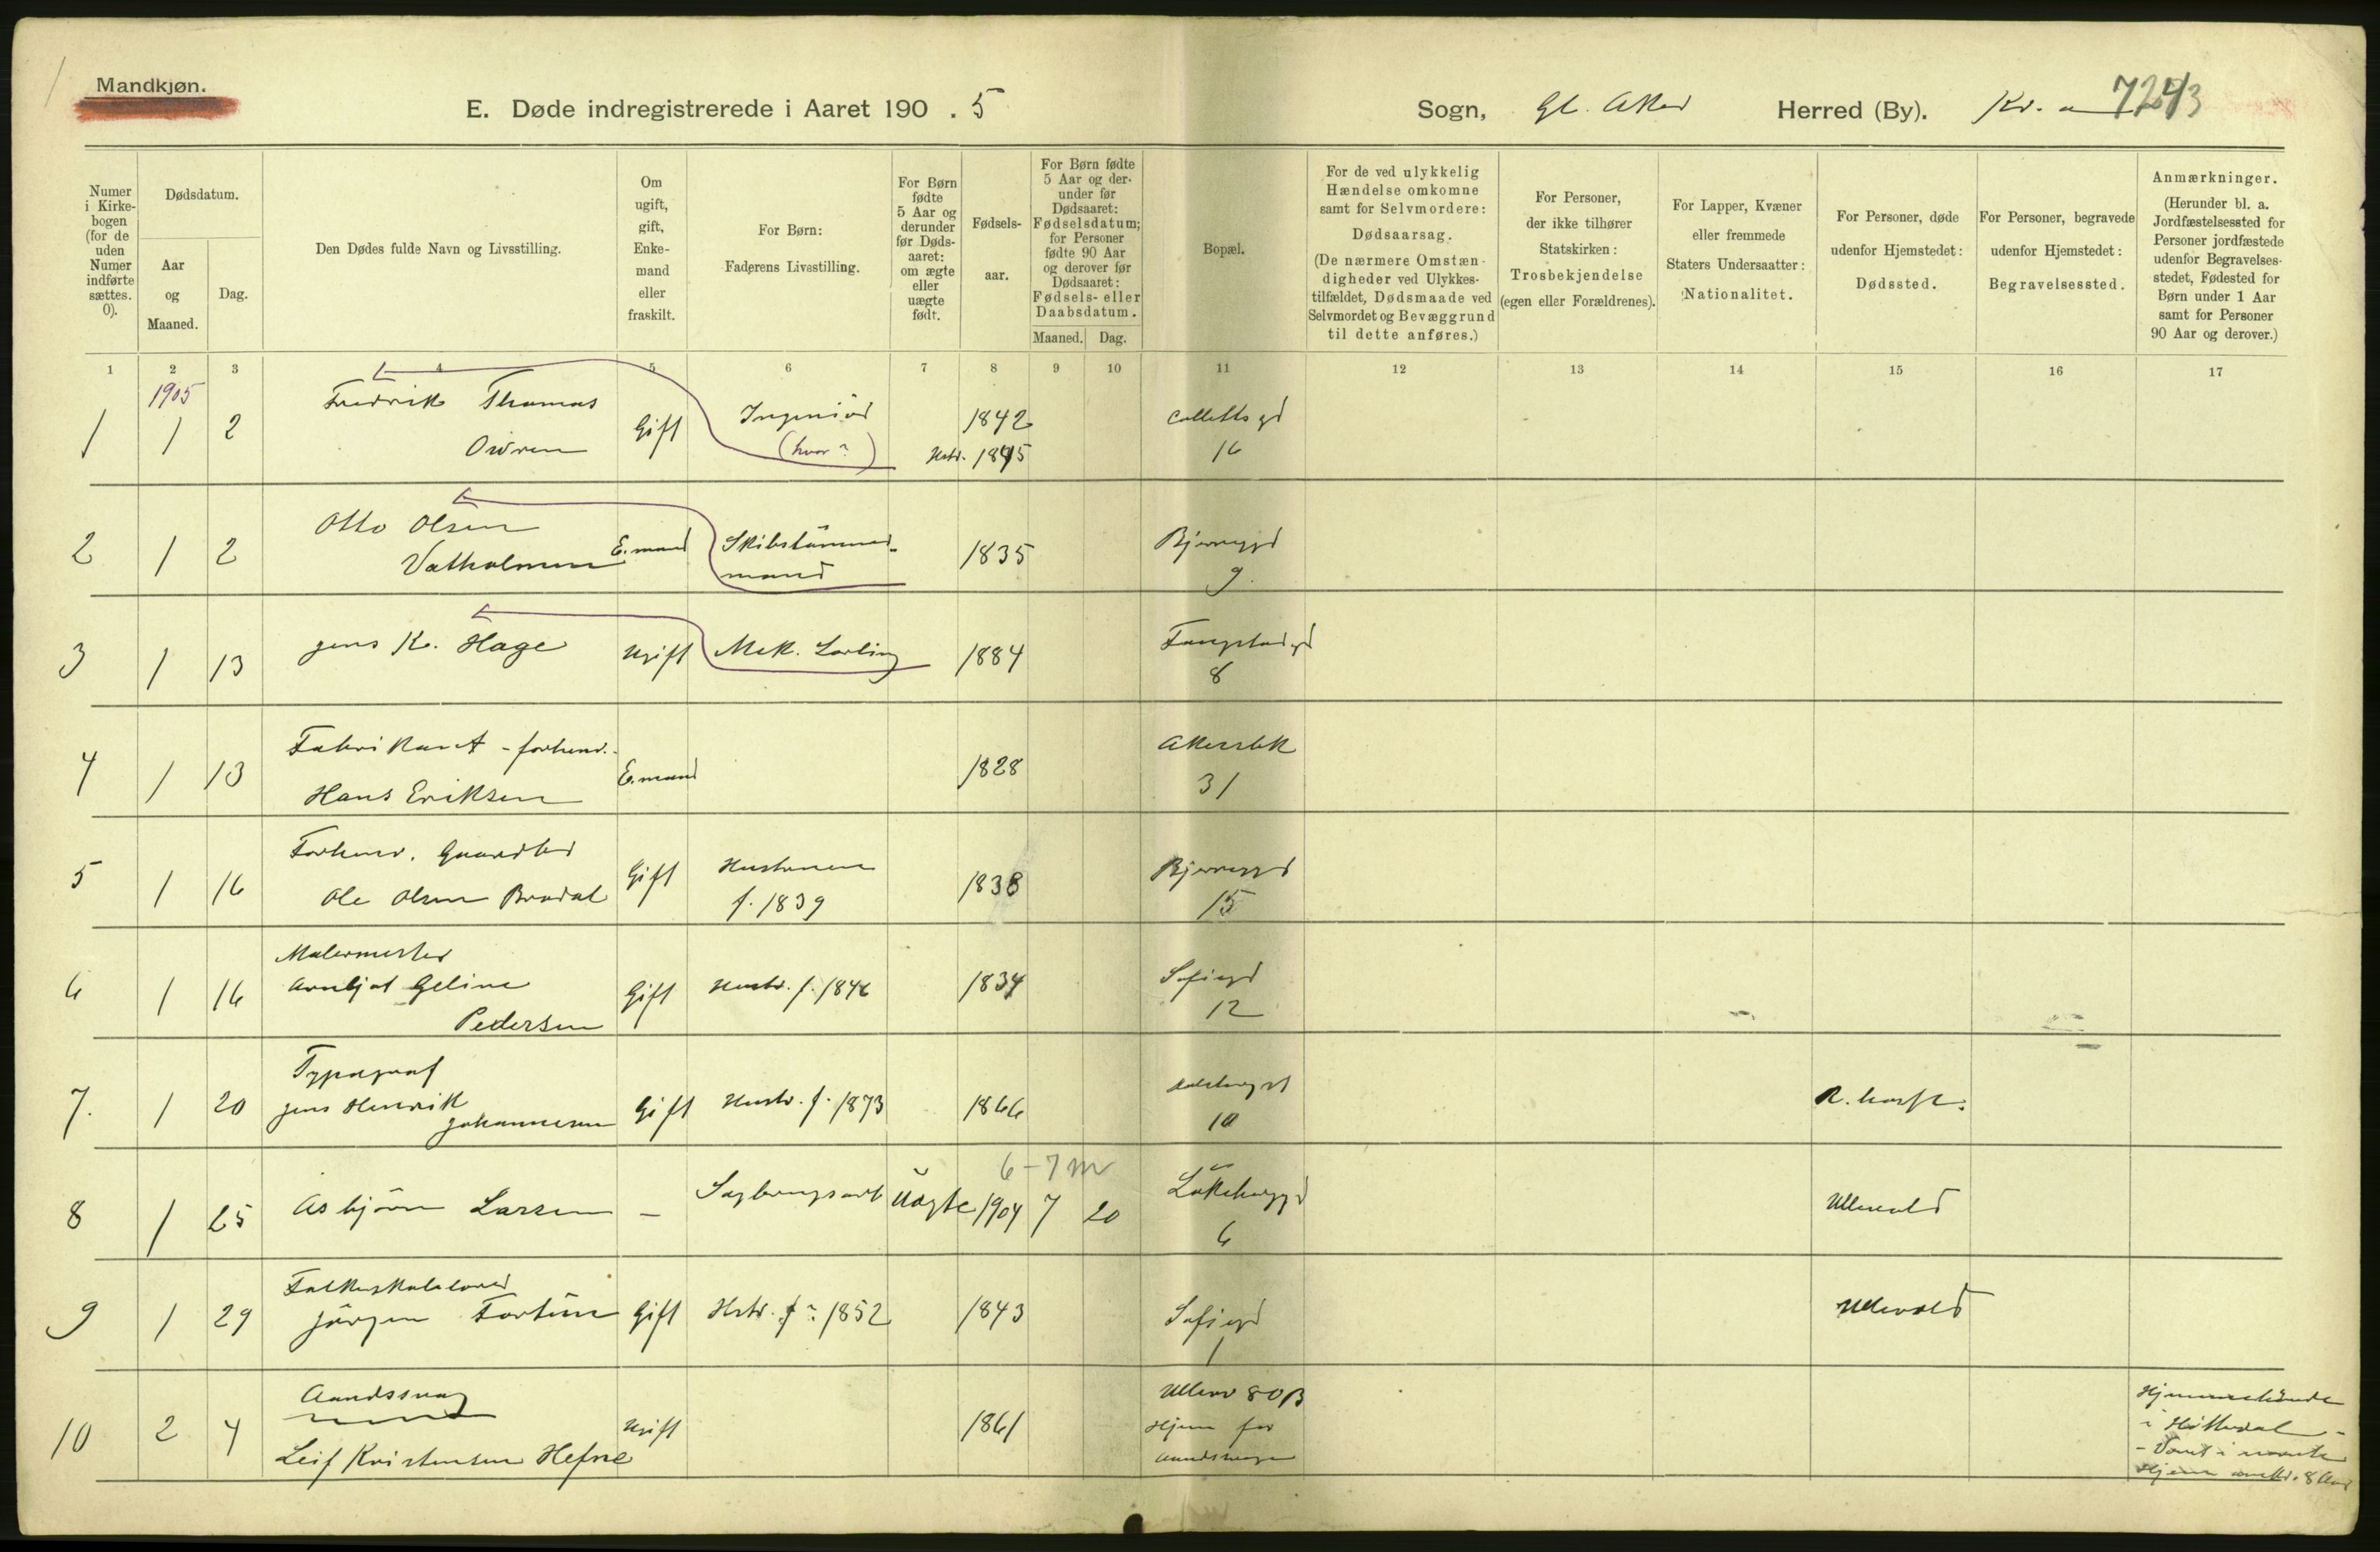 Mandkjøn.
E. Døde indregistrerede i Aaret 190 . 5
Sogn, Gl. Aker Herred (By). Kr. a 7243
Numer i Kirkebogen (for de uden Numer indførte sættes. 0).
Dødsdatum.
Aar og Maaned.
Dag.
Den Dødes fulde Navn og Livsstilling.
Om ugift, gift, Enkemand eller fraskilt.
For Børn: Faderens Livsstilling.
For Børn fødte 5 Aar og derunder før Dødsaaret: om ægte eller uægte født.
Fødselsaar.
For Børn fødte 5 Aar og derunder før Dødsaaret: Fødselsdatum; for Personer fødte 90 Aar og derover før Dødsaaret: Fødsels- eller Daabsdatum.
Maaned. Dag.
Bopæl.
For de ved ulykkelig Hændelse omkomne samt for Selvmordere: Dødsaarsag. (De nærmere Omstændigheder ved Ulykkestilfældet, Dødsmaade ved Selvmordet og Bevæggrund til dette anføres.)
For Personer, der ikke tilhører Statskirken: Trosbekjendelse (egen eller Forældrenes).
For Lapper, Kvæner eller fremmede Staters Undersaatter: Nationalitet.
For Personer, døde udenfor Hjemstedet: Dødssted.
For Personer, begravede udenfor Hjemstedet: Begravelsessted.
Anmærkninger. (Herunder bl. a. Jordfæstelsessted for Personer jordfæstede udenfor Begravelsesstedet, Fødested for Børn under 1 Aar samt for Personer 90 Aar og derover.)
1 2 3 4 5 6 7 8 9 10 11 12 13 14 15 16 17
1905
1 1 2 Fredrik Thomas Owren Gift Ingeniör (hvor?) 1842 Hstr. 1845 Colletts gd 16
2 1 2 Otto Olsen Vatholmen E.mand Skibstömmermand 1835 Bjerregd 9.
3 1 13 Jens K. Hage Ugift Mek. Lærling 1884 8
4 1 13 Fabrikant - forhenv. Hans Eriksen E.mand 1828 Akersbk 31
5 1 16 Forhenv. Gaardbr Ole Olsen Brodal Gift Hustruen f. 1839 1838 Bjerregd 15
6 1 16 Malermester Arnljot Geline Pedersen Gift Hustr. f. 1846 1834 Sofiegd 12
7. 1 20 Typograf Jens Henrik Johannesen Gift Hustr. f. 1873 1866 10 R. hosp.
6-7 m
8 1 25 Asbjörn Larsen - Sagbrugsarb Uægte 1904 7 20 Lökkebergd 6 Ullevold
9 1 29 Folkeskolelærer Jörgen Fortun Gift Hstr. f? 1852 1843 Sofiegd 1 Ullevold
10 2 4 Aandssvag Leif Kristensen Hefne Ugift 1861 Ullev 80 B Hjem for Aandssvage Hjemmehörende i Hitterdal - - Været i nævnte Hjem omkr. 8 Aar